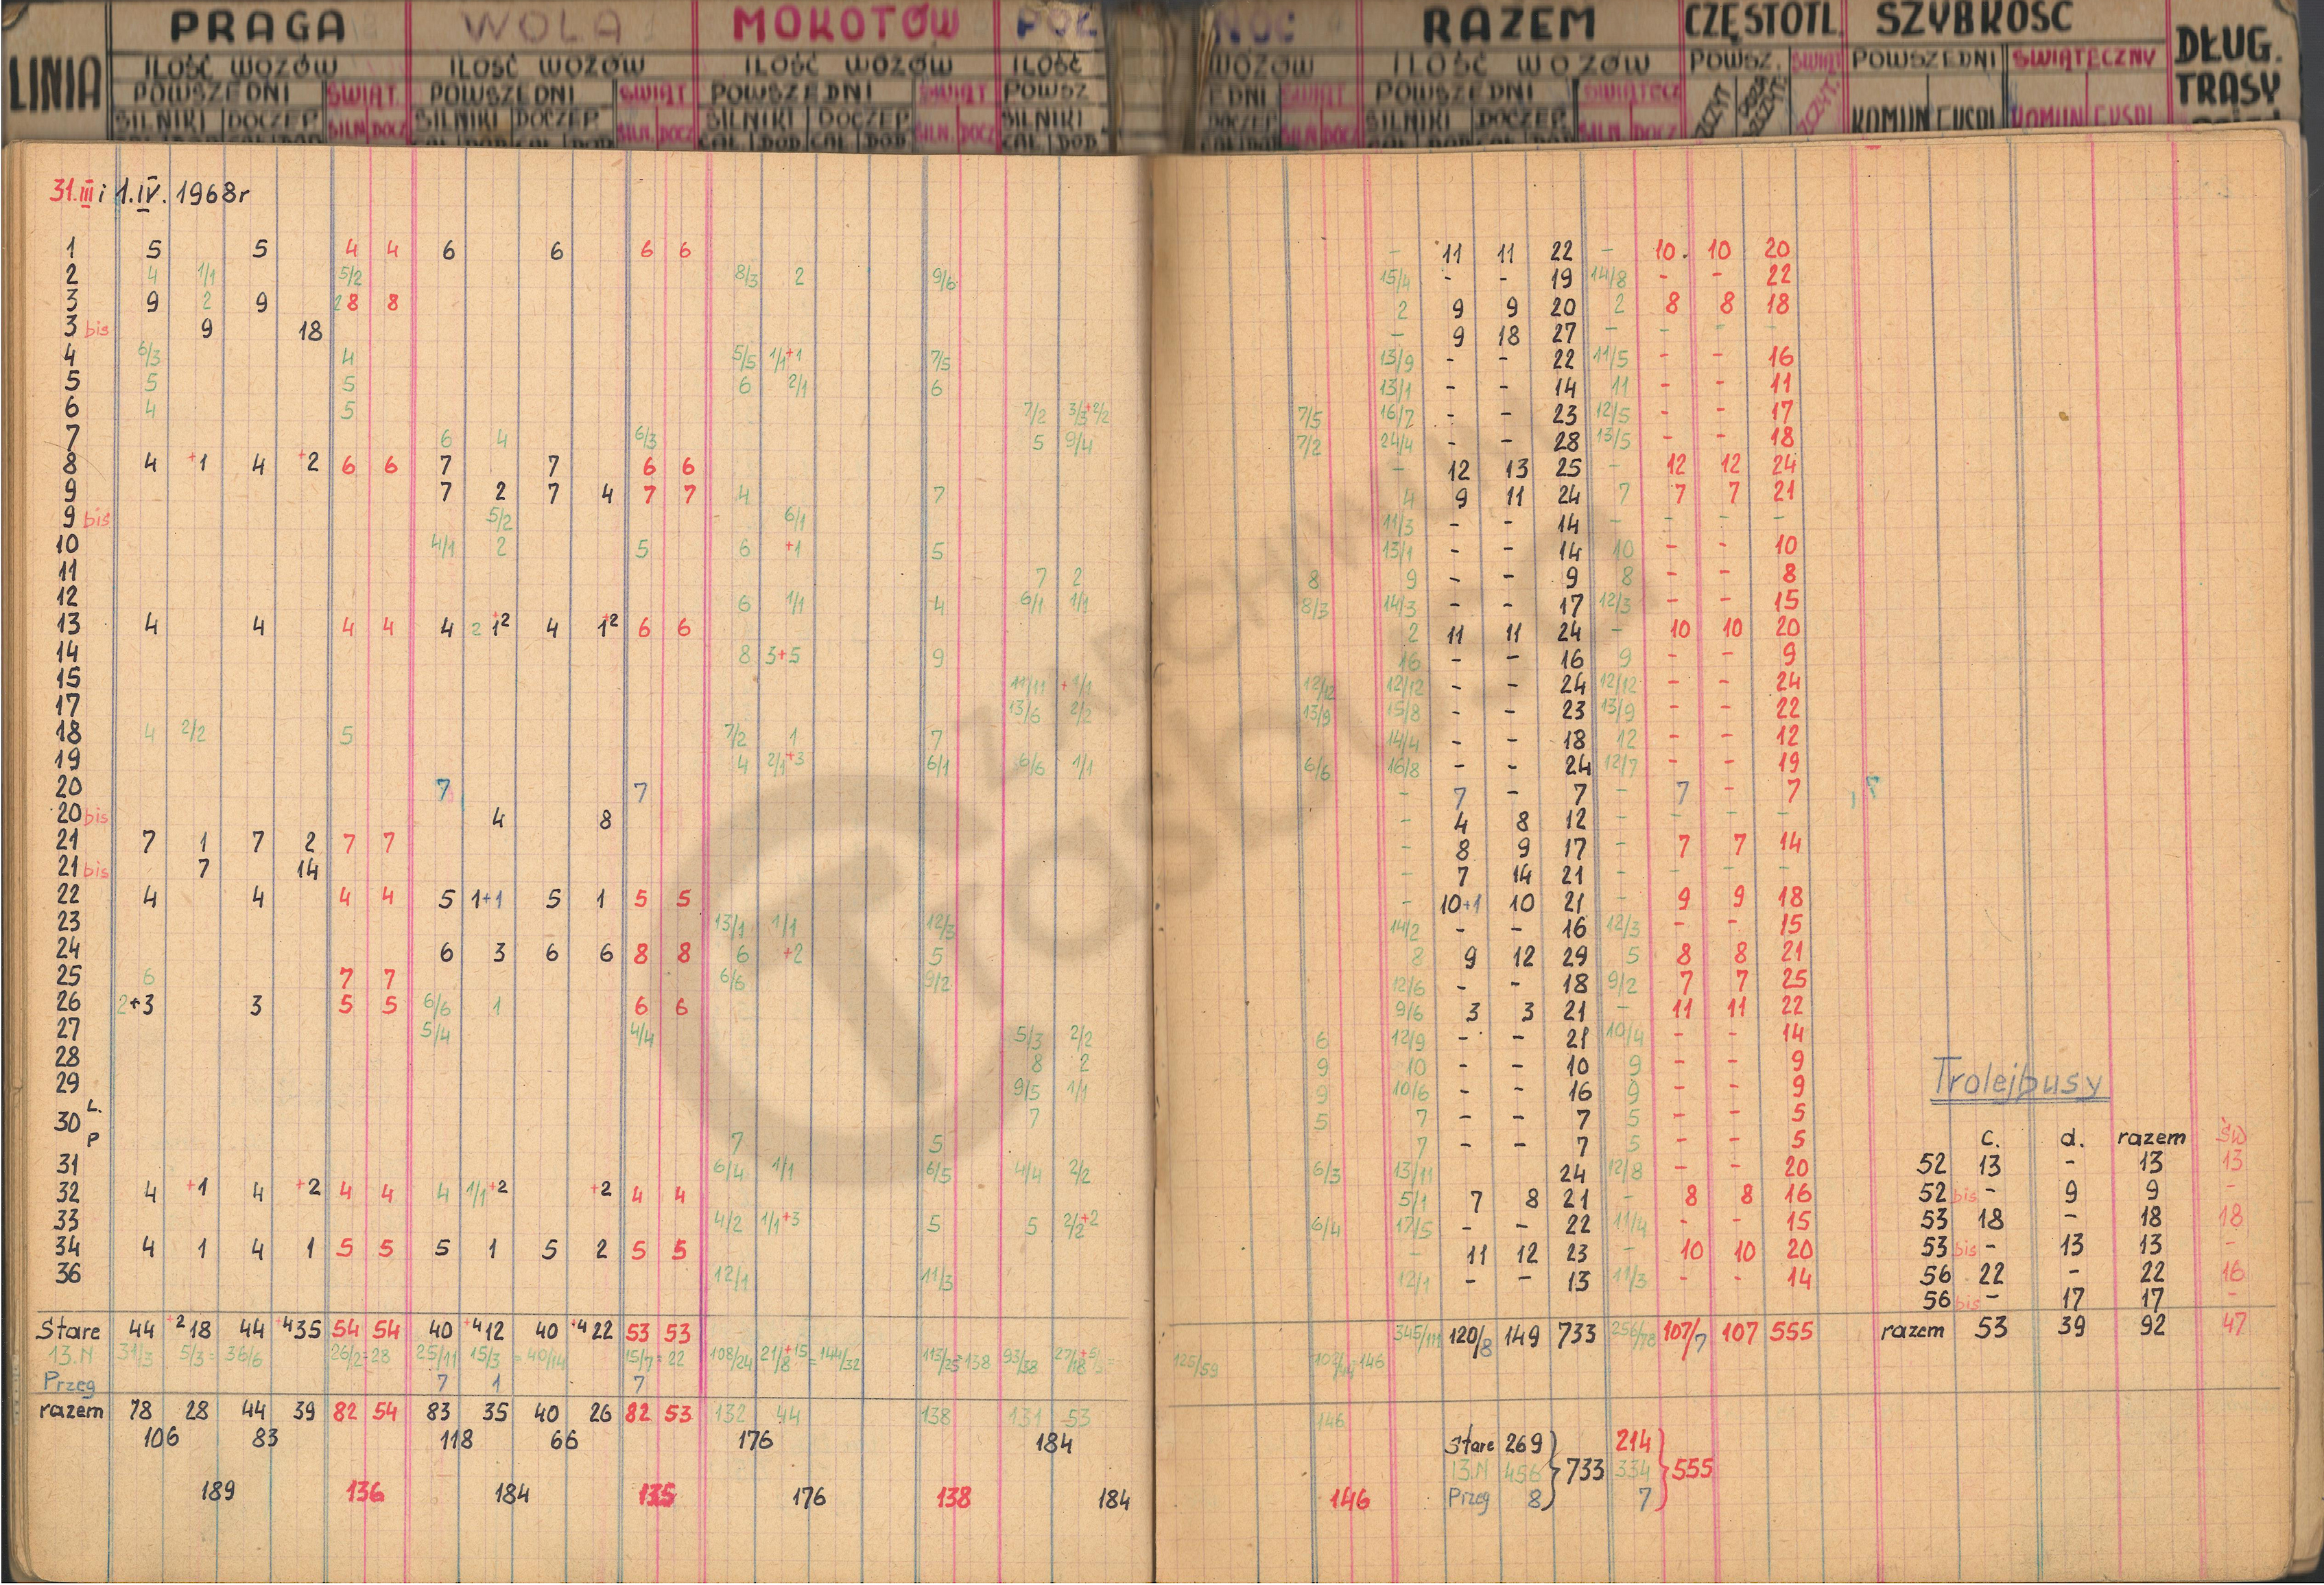 LINIA PRAGA WOLA MOKOTÓW PÓŁ NOC RAZEM CZĘSTOTL. SZYBKOŚĆ DŁUG. TRASY
ILOŚĆ WOZÓW ILOŚĆ WOZÓW ILOŚĆ WOZÓW ILOŚĆ WOZÓW ILOŚĆ WOZÓW POWSZ. ŚWIĄT POWSZEDNI ŚWIĄTECZNY
POWSZEDNI ŚWIĄT. POWSZEDNI ŚWIĄT POWSZEDNI ŚWIĄT POWSZ EDNI ŚWIĄT POWSZEDNI ŚWIĄTECZ
SILNIKI DOCZEP SILN. DOCZ SILNIKI DOCZEP SILN. DOCZ SILNIKI DOCZEP SILN. DOCZ SILNIKI DOCZEP SILN. DOCZ SILNIKI DOCZEP SILN. DOCZ KOMUN EKSPL KOMUN EKSPL
CAŁ DOD CAŁ DOD CAŁ DOD CAŁ DOD CAŁ DOD CAŁ DOD CAŁ DOD
31.III i 1.IV. 1968r
1 5 5 4 4 6 6 6 6 - 11 11 22 - 10. 10 20
2 4 1/1 5/2 8/3 2 9/6 15/4 - - 19 14/8 - - 22
3 9 2 9 2 8 8 2 9 9 20 2 8 8 18
3 bis 9 18 - 9 18 27 - - - -
4 6/3 4 5/5 1/1+1 7/5 13/9 - - 22 11/5 - - 16
5 5 5 6 2/1 6 13/1 - - 14 11 - - 11
6 4 5 7/2 3/3+2/2 7/5 16/7 - - 23 12/5 - - 17
7 6 4 6/3 5 9/4 7/2 24/4 - - 28 13/5 - - 18
8 4 +1 4 +2 6 6 7 7 6 6 - 12 13 25 - 12 12 24
9 7 2 7 4 7 7 4 7 4 9 11 24 7 7 7 21
9 bis 5/2 6/1 11/3 - - 14 - - - -
10 4/1 2 5 6 +1 5 13/1 - - 14 10 - - 10
11 7 2 8 9 - - 9 8 - - 8
12 6 1/1 4 6/1 1/1 8/3 14/3 - - 17 12/3 - - 15
13 4 4 4 4 4 2 1+2 4 1+2 6 6 2 11 11 24 - 10 10 20
14 8 3+5 9 16 - - 16 9 - - 9
15 11/11 +1/1 12/12 12/12 - - 24 12/12 - - 24
17 13/6 2/2 13/9 15/8 - - 23 13/9 - - 22
18 4 2/2 5 7/2 1 7 14/4 - - 18 12 - - 12
19 4 2/1+3 6/1 6/6 1/1 6/6 16/8 - - 24 12/7 - - 19
20 7 7 - 7 - 7 - 7 - 7
20 bis 4 8 - 4 8 12 - - - -
21 7 1 7 2 7 7 - 8 9 17 - 7 7 14
21 bis 7 14 - 7 14 21 - - - -
22 4 4 4 4 5 1+1 5 1 5 5 - 10+1 10 21 - 9 9 18
23 13/1 1/1 12/3 14/2 - - 16 12/3 - - 15
24 6 3 6 6 8 8 6 +2 5 8 9 12 29 5 8 8 21
25 6 7 7 6/6 9/2 12/6 - - 18 9/2 7 7 25
26 2+3 3 5 5 6/6 1 6 6 9/6 3 3 21 - 11 11 22
27 5/4 4/4 5/3 2/2 6 12/9 - - 21 10/4 - - 14
28 8 2 9 10 - - 10 9 - - 9
29 9/5 1/1 9 10/6 - - 16 9 - - 9
30 L. 7 5 7 - - 7 5 - - 5
P 7 5 7 - - 7 5 - - 5
31 6/4 1/1 6/5 4/4 2/2 6/3 13/11 24 12/8 - - 20
32 4 +1 4 +2 4 4 4 1/1+2 +2 4 4 5/1 7 8 21 - 8 8 16
33 4/2 1/1+3 5 5 2/2+2 6/4 17/5 - - 22 11/4 - - 15
34 4 1 4 1 5 5 5 1 5 2 5 5 - 11 12 23 - 10 10 20
36 12/1 11/3 12/1 - - 13 11/3 - - 14
Trolejbusy
c. d. razem św
52 13 - 13 13
52 bis - 9 9 -
53 18 - 18 18
53 bis - 13 13 -
56 22 - 22 16
56 bis - 17 17 -
razem 53 39 92 47
Stare 44 +2 18 44 +4 35 54 54 40 +4 12 40 +4 22 53 53 345/111 120/8 149 733 256/78 107/7 107 555
13.N 31/3 5/3= 36/6 26/2=28 25/11 15/3 =40/14 15/7=22 108/24 21/8+15 =144/32 113/25=138 93/38 125/59 =146
Przeg 7 1 7
razem 78 28 44 39 82 54 83 35 40 26 82 53 132 44 138 131 53 146
106 83 118 66 176 184
189 136 184 135 176 138 184 146
Stare 269 214
13.N 456 733 334 555
Przeg 8 7